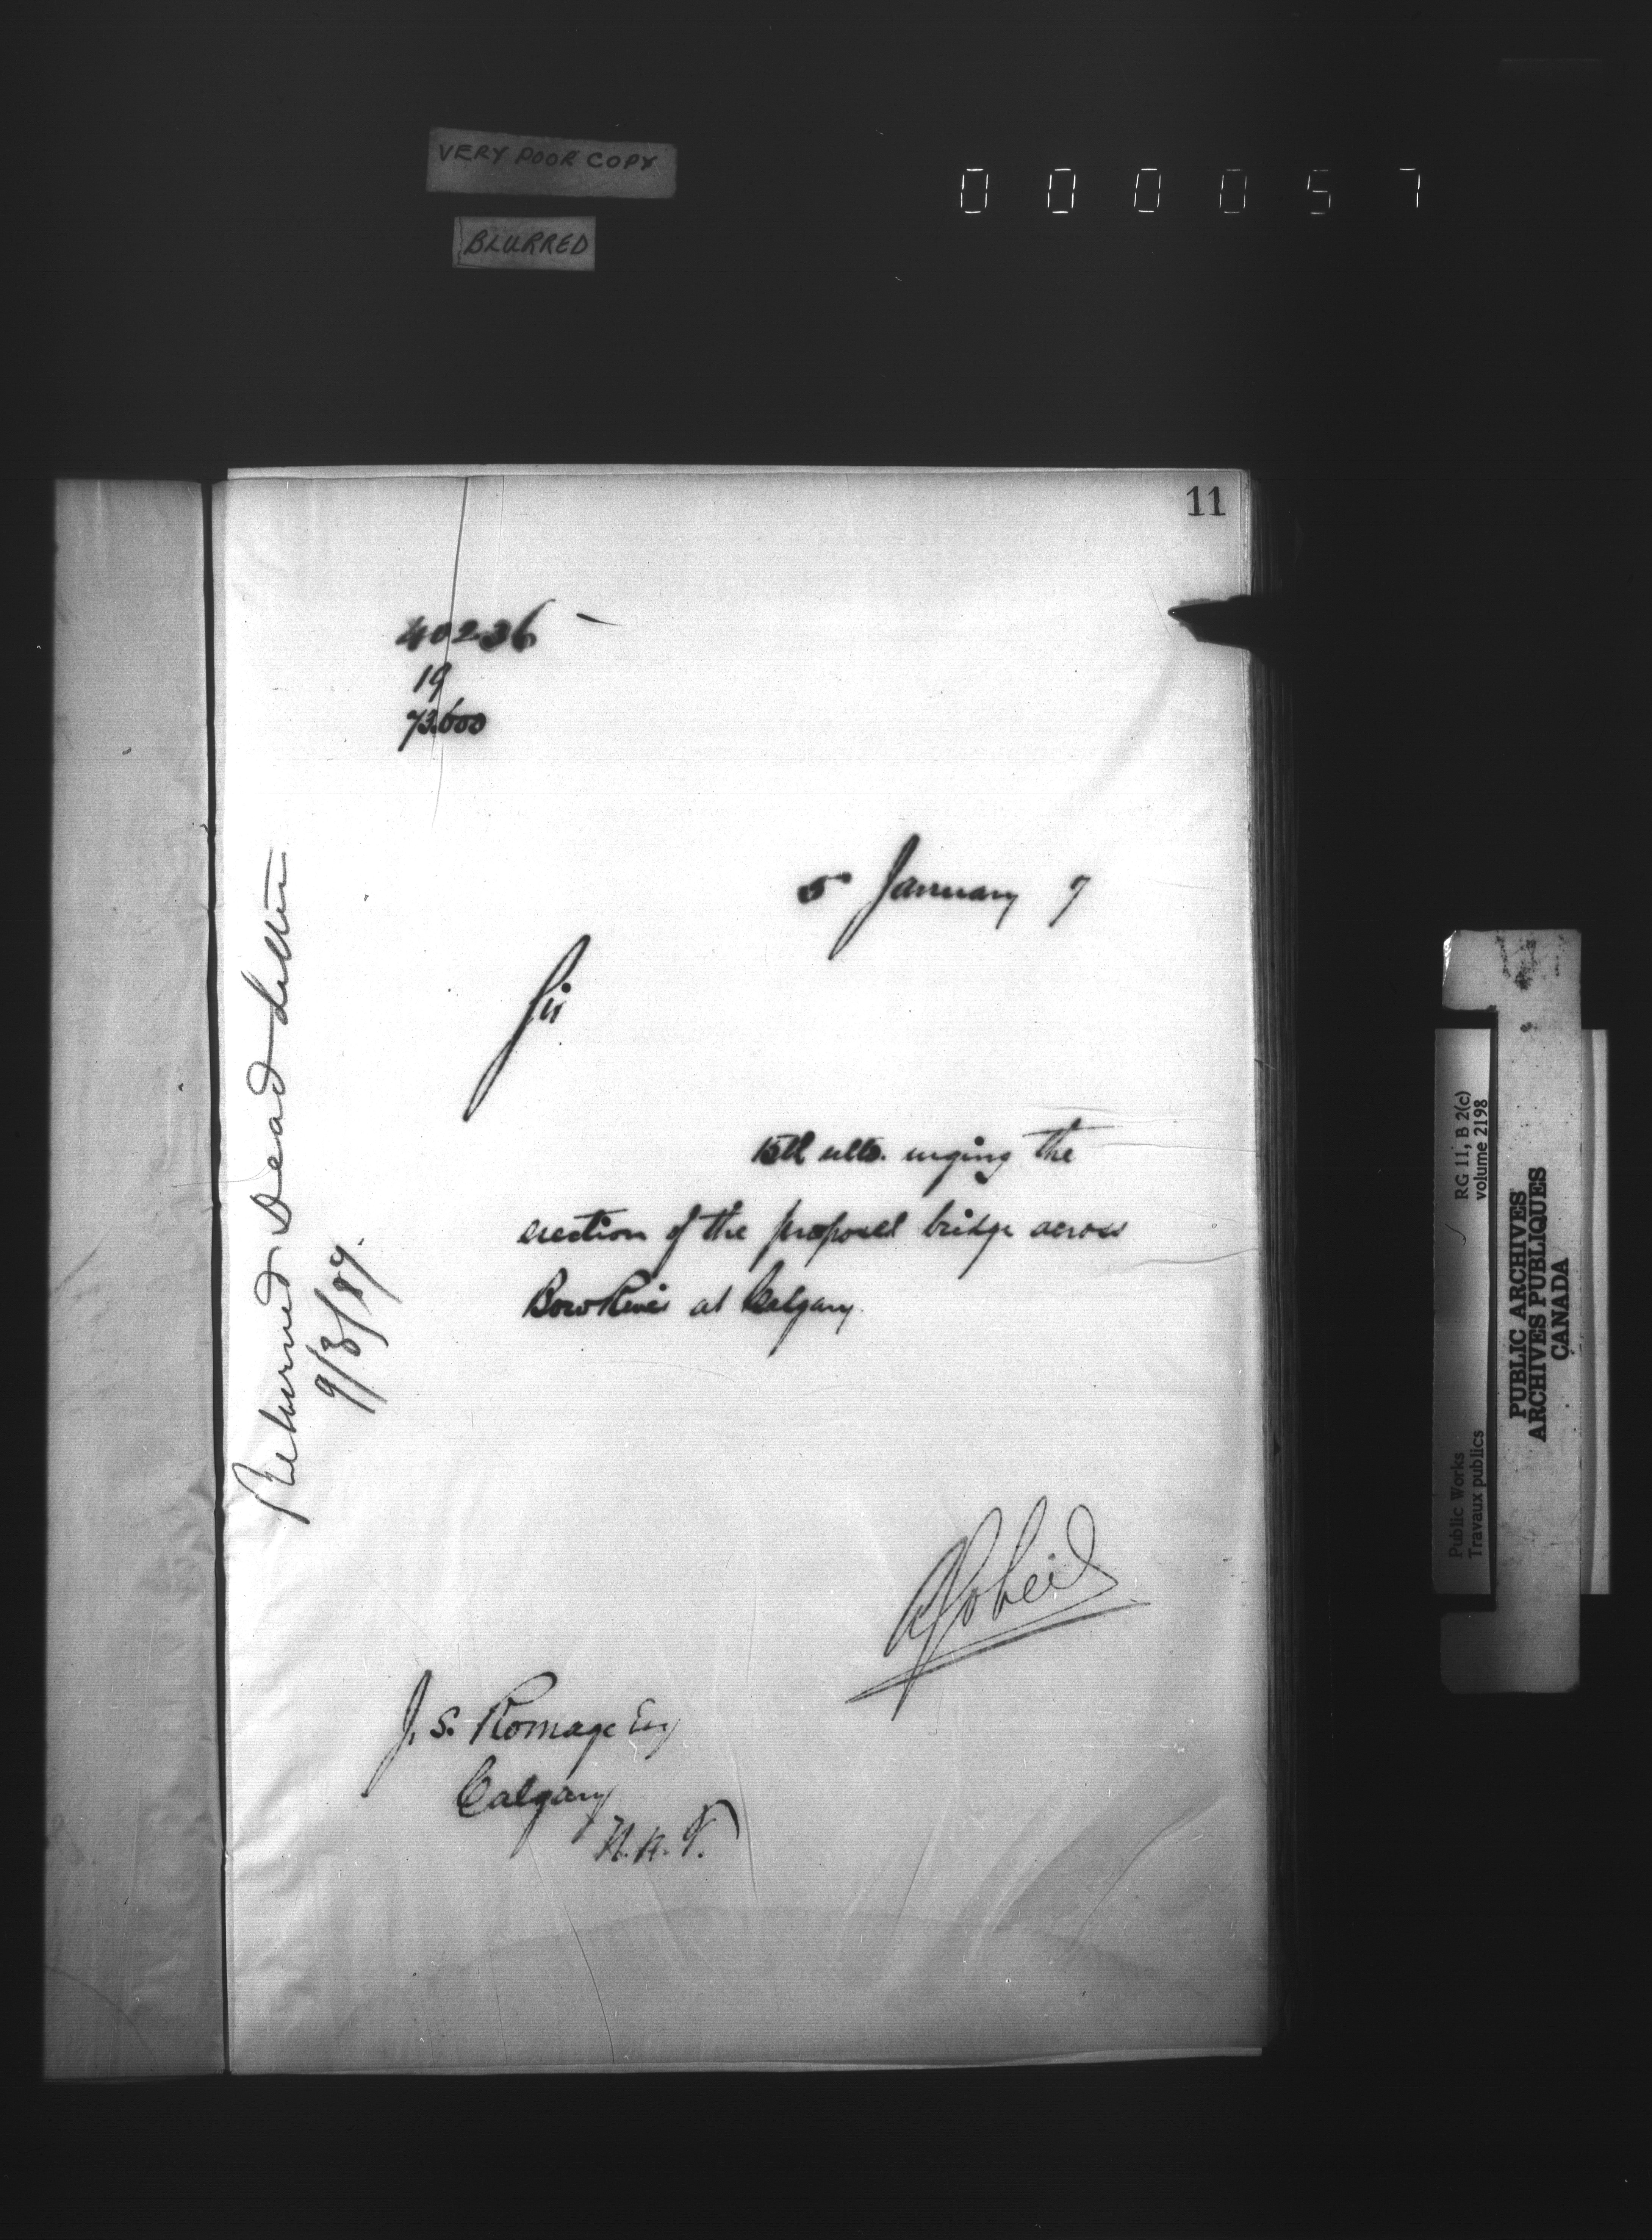 VERY POOR COPY
BLURRED
000057
11
40236
19
73600
5 January 7
Sir
15th ulto. urging the
erection of the proposed bridge across
Bow River at Calgary.
Returned Dead Letter
9/3/87.
J. S. Romage Esq
Calgary
N.W.T.
RG 11, B 2(c)
volume 2198
Public Works
Travaux publics
PUBLIC ARCHIVES
ARCHIVES PUBLIQUES
CANADA